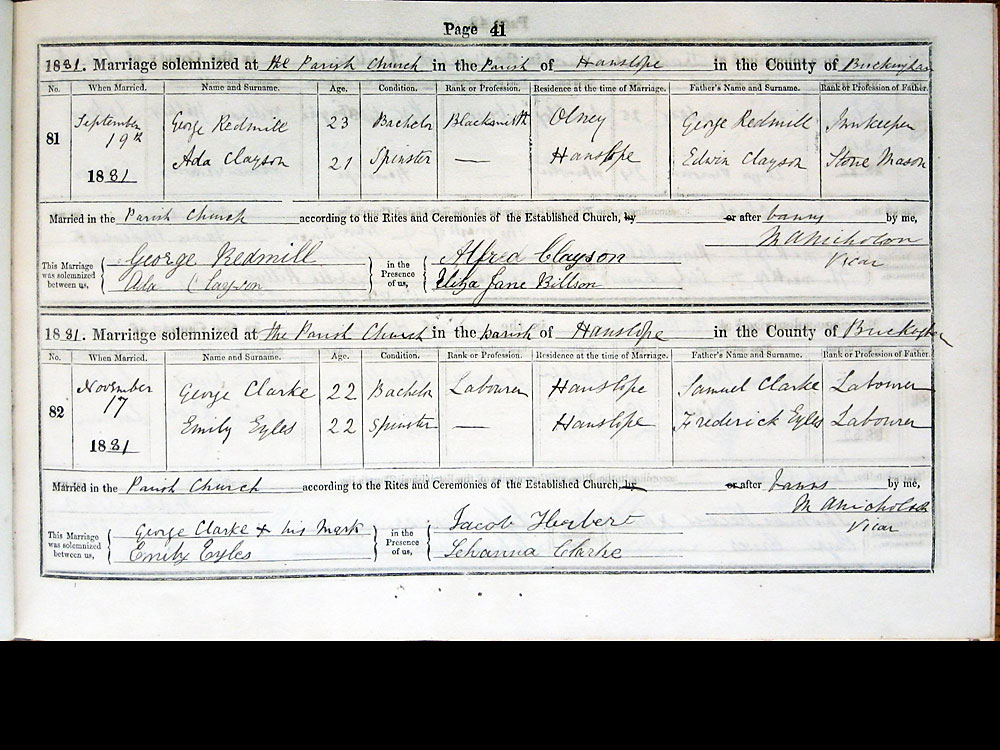 Page 41
1881. Marriage solemnized at the Parish Church in the Parish of Hanslope in the County of Buckingham
No. When Married. Name and Surname. Age. Condition. Rank or Profession. Residence at the time of Marriage. Father's Name and Surname. Rank or Profession of Father.
81 September 19th 1881 George Redmill 23 Bachelor Blacksmith Olney George Redmill Innkeeper
Ada Clayson 21 Spinster — Hanslope Edwin Clayson Stone Mason
Married in the Parish Church according to the Rites and Ceremonies of the Established Church, by or after banns by me,
M A Nicholson
Vicar
This Marriage was solemnized between us, George Redmill in the Presence of us, Alfred Clayson
Ada Clayson Eliza Jane Billson
1881. Marriage solemnized at the Parish Church in the parish of Hanslope in the County of Buckingham
No. When Married. Name and Surname. Age. Condition. Rank or Profession. Residence at the time of Marriage. Father's Name and Surname. Rank or Profession of Father.
82 November 17 1881 George Clarke 22 Bachelor Labourer Hanslope Samuel Clarke Labourer
Emily Eyles 22 Spinster — Hanslope Frederick Eyles Labourer
Married in the Parish Church according to the Rites and Ceremonies of the Established Church, by or after banns by me,
M A Nicholson
Vicar
This Marriage was solemnized between us, George Clarke + his mark in the Presence of us, Jacob Herbert
Emily Eyles Lehanna Clarke